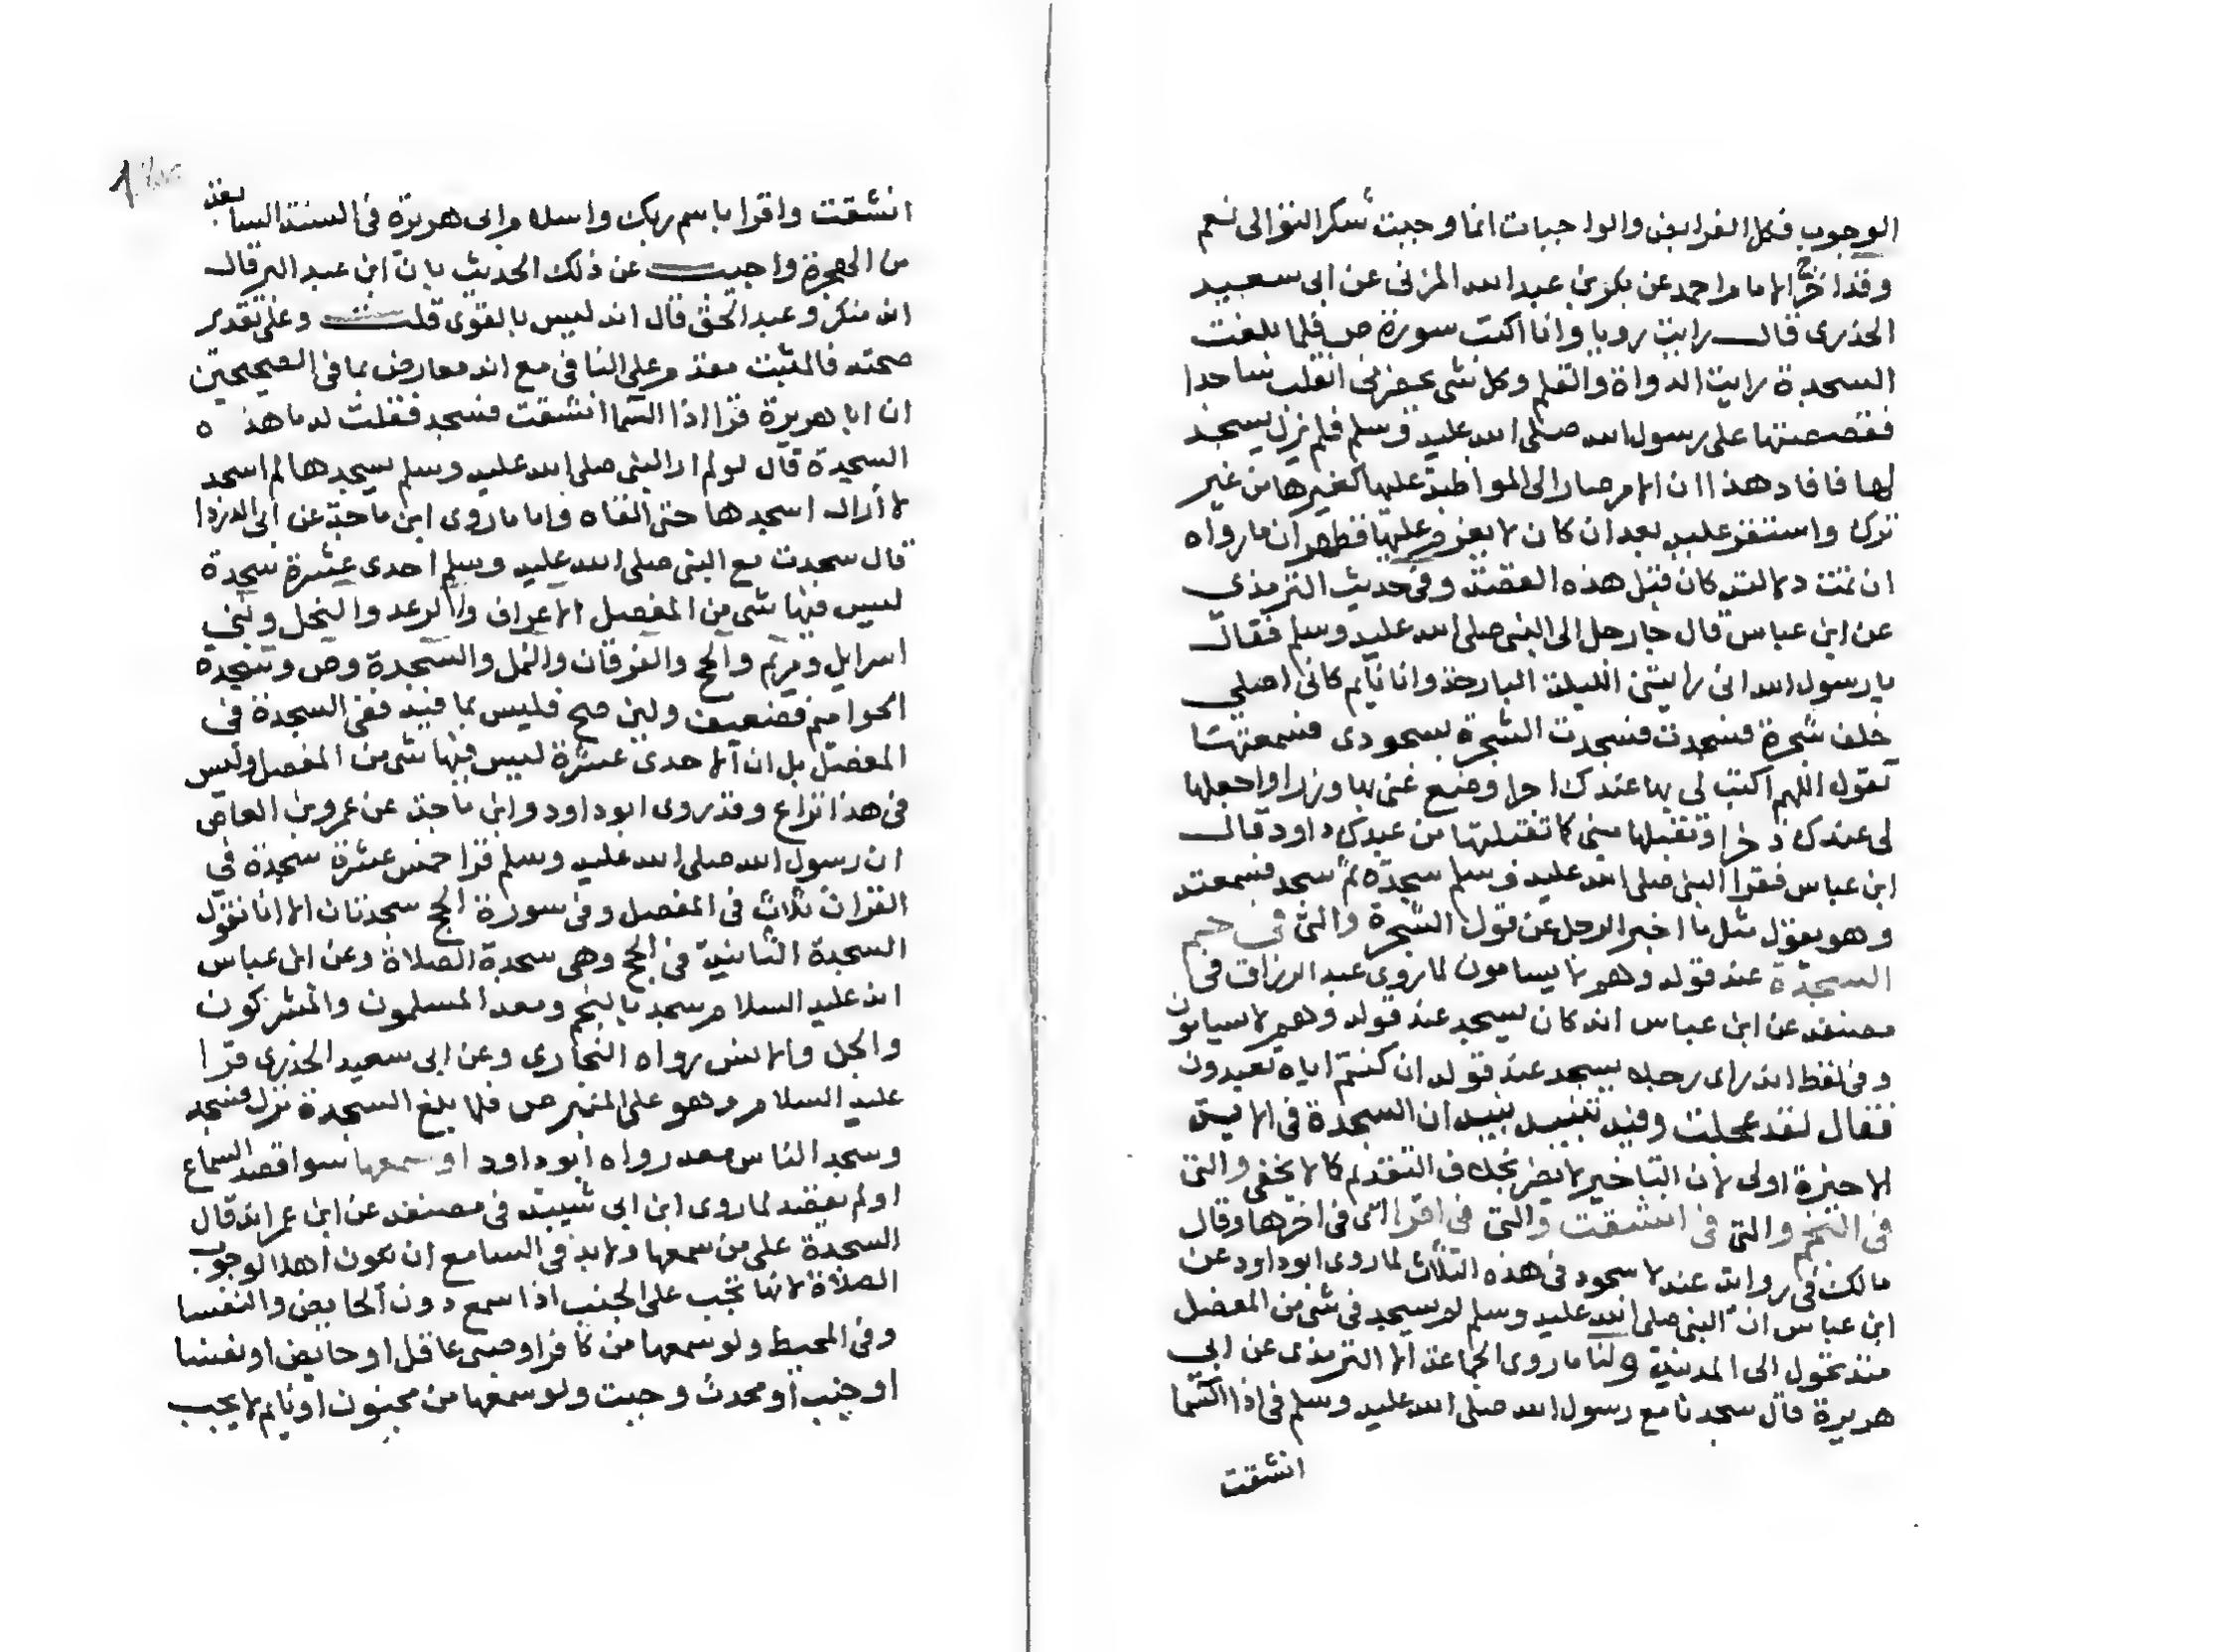 الوجوب فكل الفرايض والواجبات انما وجبت شكرا لتوالى نعم
وقد اخرج الامام احمد عن بكر بن عبد الله المزنى عن ابى سعيد
الخدرى قال رايت رويا وانا اكتب سورة ص فلما بلغت
السجدة رايت الدواة والقلم وكل شى بحضرتى انقلب ساجدا
فقصصتها على رسول الله صلى الله عليه وسلم فلم يزل يسجد
لها فافاد هذا ان الامر صار الى المواظبة عليها كغيرها من غير
ترك واستقر عليه بعد ان كان لا يعزم عليها فظهر ان ما رواه
ان تمت دلالته كان قبل هذه القصة وفى حديث الترمذي
عن ابن عباس قال جا رجل الى النبى صلى الله عليه وسلم فقال
يا رسول الله انى رايتنى الليلة البارحة وانا نايم كانى اصلي
خلف شجرة فسجدت فسجدت الشجرة بسجودى فسمعتها
تقول اللهم اكتب لى بها عندك اجرا وضع عنى بها وزرا واجعلها
لى عندك ذخرا وتقبلها منى كما تقبلتها من عبدك داود قال
ابن عباس فقرا النبى صلى الله عليه وسلم سجدة ثم سجد فسمعته
وهو يقول مثل ما اخبر الرجل عن قول الشجرة والتى فى حم
السجدة عند قوله وهم لا يسامون لما روى عبد الرزاق فى
مصنفه عن ابن عباس انه كان يسجد عند قوله وهم لا يسامون
وفى لفظ انه راى رجلا يسجد عند قوله ان كنتم اياه تعبدون
فقال لقد عجلت وفيه تنبيه نبيه ان السجدة فى الاية
الاخيرة اولى لان التاخير لا يضر بخلاف التقديم كما لا يخفى والتى
فى النجم والتى فى انشقت والتى فى اقرا اى فى اخرها وقال
مالك فى رواية عنه لا سجود فى هذه الثلاث لما روى ابو داود عن
ابن عباس ان النبى صلى الله عليه وسلم لم يسجد فى شى من المفصل
منذ تحول الى المدينة ولنا ما روى الجماعة الا الترمذى عن ابي
هريرة قال سجدنا مع رسول الله صلى الله عليه وسلم فى اذا السما
انشقت
انشقت واقرا باسم ربك واسلام ابى هريرة فى السنة السابعة
من الهجرة واجيب عن ذلك الحديث بان ابن عبد البر قال
انه منكر وعبد الحق قال انه ليس بالقوى قلت وعلى تقدير
صحته فالمثبت مقدم على النافى مع انه معارض بما فى الصحيحين
ان ابا هريرة قرا اذا السما انشقت فسجد فقلت له ما هذه
السجدة قال لو لم ار النبى صلى الله عليه وسلم يسجدها لم اسجد
لا ازال اسجدها حتى القاه واما ما روى ابن ماجة عن ابى الدردا
قال سجدت مع النبى صلى الله عليه وسلم احدى عشرة سجدة
ليس فيها شى من المفصل الاعراف والرعد والنحل وبني
اسرايل ومريم والحج والفرقان والنمل والسجدة وص وسجدة
الحواميم فضعيف ولين صح فليس بما فيه ففى السجدة فى
المفصل بل ان الاحدى عشرة ليس فيها شى من المفصل وليس
فى هذا نزاع وقد روى ابو داود وابن ماجة عن عمرو بن العاص
ان رسول الله صلى الله عليه وسلم قرا خمس عشرة سجدة في
القران ثلاث فى المفصل وفى سورة الحج سجدتان الا انا نقول
السجدة الثانية فى الحج وهى سجدة الصلاة وعن ابن عباس
انه عليه السلام سجد بالنجم ومعه المسلمون والمشركون
والجن والانس رواه البخارى وعن ابى سعيد الخدرى قرا
عليه السلام وهو على المنبر ص فلما بلغ السجدة نزل فسجد
وسجد الناس معه رواه ابو داود او سمعها سوا قصد السماع
او لم يقصد لما روى ابن ابى شيبة فى مصنفه عن ابن عمر انه قال
السجدة على من سمعها ولابد فى السامع ان يكون اهلا لوجوب
الصلاة لانها تجب على الجنب اذا سمع دون الحايض والنفسا
وفى المحيط ولو سمعها من كافر او صبى عاقل او حايض او نفسا
او جنب او محدث وجبت ولو سمعها من مجنون او نايم لا يجب